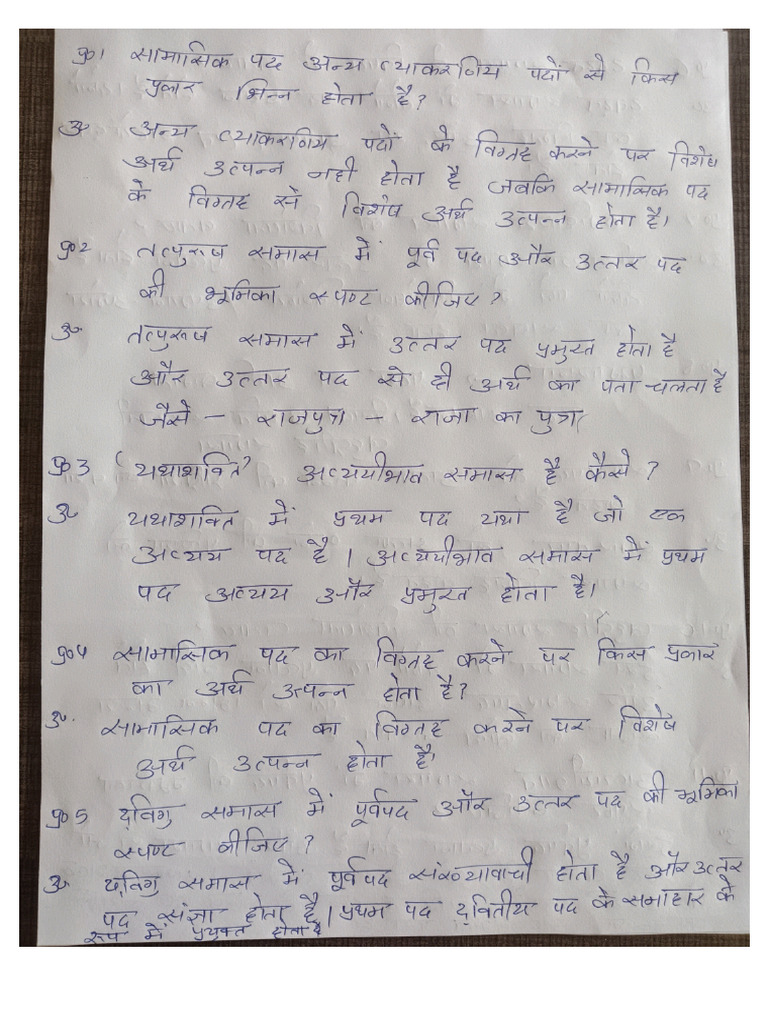 प्र०1 सामासिक पद अन्य व्याकरणिय पदों से किस
प्रकार भिन्न होता है?
उ० अन्य व्याकरणिय पदों के विग्रह करने पर विशेष
अर्थ उत्पन्न नही होता है जबकि सामासिक पद
के विग्रह से विशेष अर्थ उत्पन्न होता है।
प्र०2 तत्पुरूष समास में पूर्व पद और उत्तर पद
की भूमिका स्पष्ट कीजिए?
उ० तत्पुरूष समास में उत्तर पद प्रमुख होता है
और उत्तर पद से ही अर्थ का पता चलता है
जैसे - राजपुत्र - राजा का पुत्र।
प्र०3 'यथाशक्ति' अव्ययीभाव समास है कैसे?
उ० यथाशक्ति में प्रथम पद यथा है जो एक
अव्यय पद है। अव्ययीभाव समास में प्रथम
पद अव्यय और प्रमुख होता है।
प्र०4 सामासिक पद का विग्रह करने पर किस प्रकार
का अर्थ उत्पन्न होता है?
उ०. सामासिक पद का विग्रह करने पर विशेष
अर्थ उत्पन्न होता है।
प्र०5 द्विगु समास में पूर्वपद और उत्तर पद की भूमिका
स्पष्ट कीजिए?
उ० द्विगु समास में पूर्वपद संख्यावाची होता है और उत्तर
पद संज्ञा होता है। प्रथम पद द्वितीय पद के समाहार के
रूप में प्रयुक्त होता है